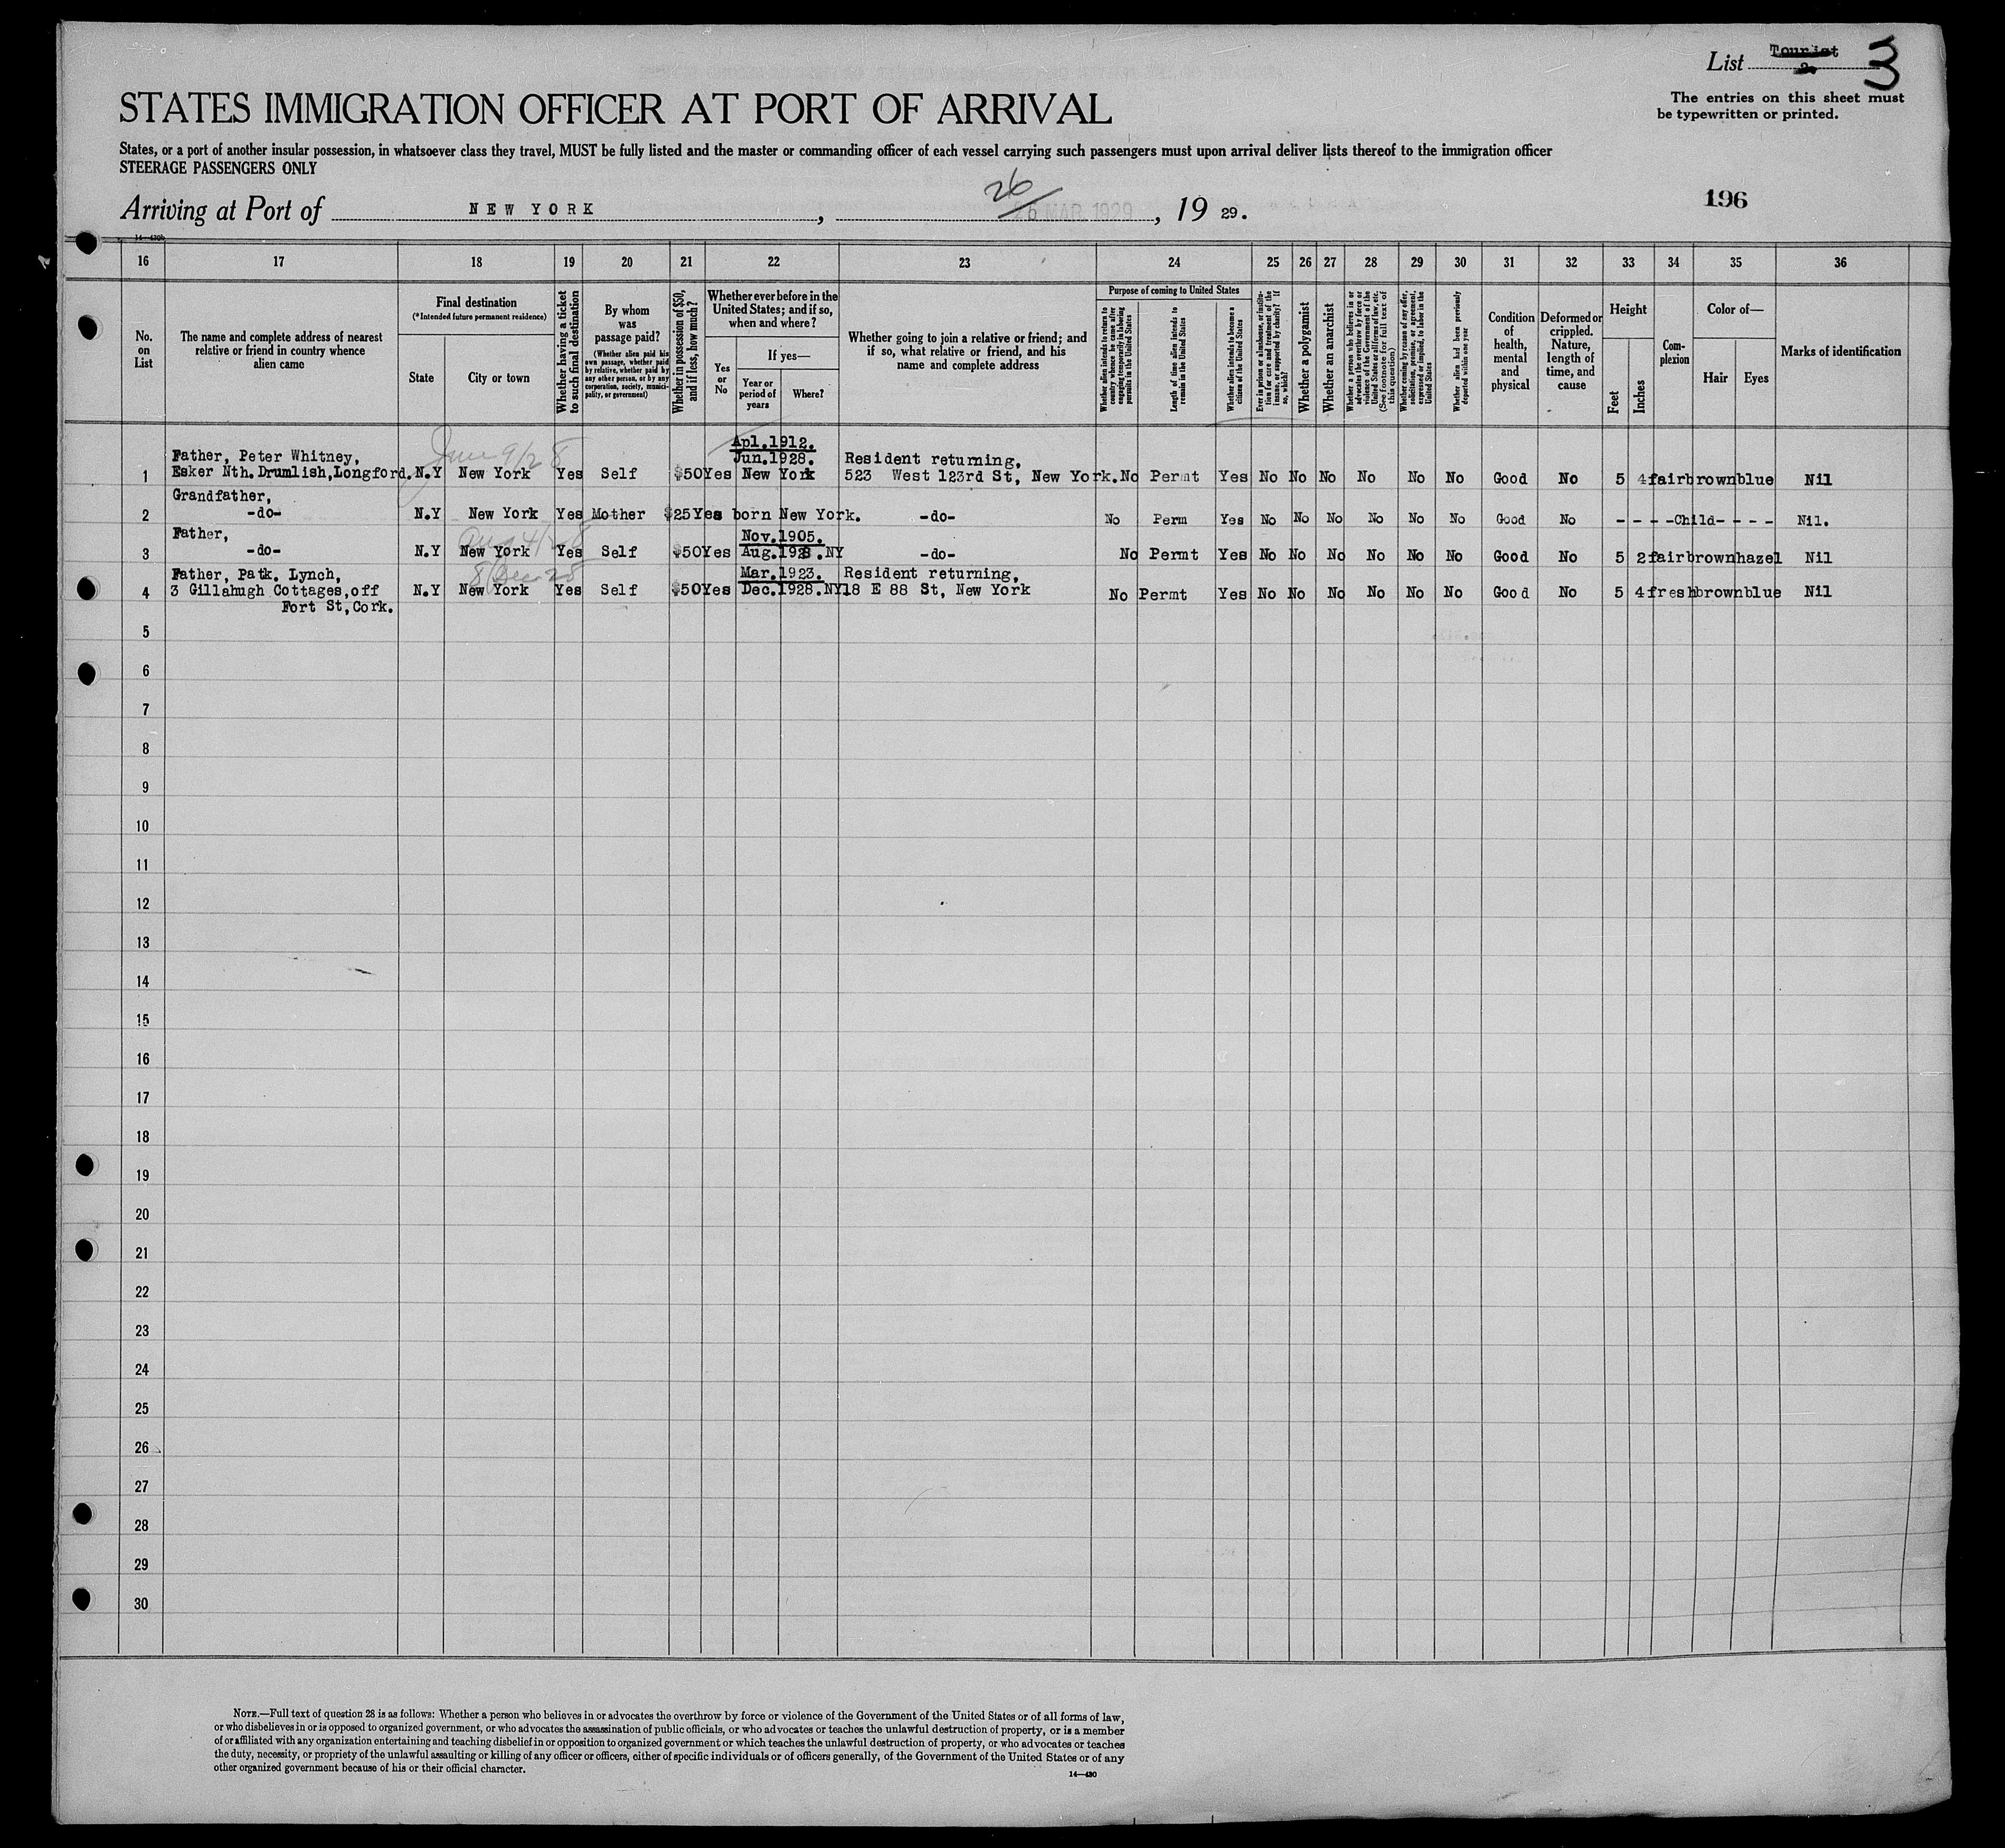 List Tourist 2 3
The entries on this sheet must
be typewritten or printed.
STATES IMMIGRATION OFFICER AT PORT OF ARRIVAL
States, or a port of another insular possession, in whatsoever class they travel, MUST be fully listed and the master or commanding officer of each vessel carrying such passengers must upon arrival deliver lists thereof to the immigration officer
STEERAGE PASSENGERS ONLY
Arriving at Port of NEW YORK, 26 26 MAR 1929, 19 29.
196
14—430b
16 17 18 19 20 21 22 23 24 25 26 27 28 29 30 31 32 33 34 35 36
No. on List
The name and complete address of nearest relative or friend in country whence alien came
Final destination
(*Intended future permanent residence)
State
City or town
Whether having a ticket to such final destination
By whom was passage paid?
(Whether alien paid his own passage, whether paid by relative, whether paid by any other person, or by any corporation, society, municipality, or government)
Whether in possession of $50, and if less, how much?
Whether ever before in the United States; and if so, when and where?
Yes or No
If yes—
Year or period of years
Where?
Whether going to join a relative or friend; and if so, what relative or friend, and his name and complete address
Purpose of coming to United States
Whether alien intends to return to country whence he came after engaging temporarily in laboring pursuits in the United States
Length of time alien intends to remain in the United States
Whether alien intends to become a citizen of the United States
Ever in prison or almshouse, or institution for care and treatment of the insane, or supported by charity? If so, which?
Whether a polygamist
Whether an anarchist
Whether a person who believes in or advocates the overthrow by force or violence of the Government of the United States or all forms of law, etc. (See footnote for full text of this question)
Whether coming by reason of any offer, solicitation, promise, or agreement, expressed or implied, to labor in the United States
Whether alien had been previously deported within one year
Condition of health, mental and physical
Deformed or crippled. Nature, length of time, and cause
Height
Feet
Inches
Complexion
Color of—
Hair
Eyes
Marks of identification
June 9/28
Apl.1912.
Father, Peter Whitney, Jun.1928. Resident returning,
1 Esker Nth.Drumlish,Longford. N.Y New York Yes Self $50 Yes New York 523 West 123rd St, New York. No Permt Yes No No No No No No Good No 5 4 fair brown blue Nil
Grandfather,
2 -do- N.Y New York Yes Mother $25 Yes born New York. -do- No Perm Yes No No No No No No Good No - - - -Child- - - - Nil.
Aug 4/28
Father, Nov.1905.
3 -do- N.Y New York Yes Self $50 Yes Aug.1928.NY -do- No Permt Yes No No No No No No Good No 5 2 fair brown hazel Nil
8 Dec 28
Father, Patk. Lynch, Mar.1923. Resident returning,
4 3 Gillahugh Cottages,off N.Y New York Yes Self $50 Yes Dec.1928.NY 18 E 88 St, New York No Permt Yes No No No No No No Good No 5 4 fresh brown blue Nil
Fort St,Cork.
5
6
7
8
9
10
11
12
13
14
15
16
17
18
19
20
21
22
23
24
25
26
27
28
29
30
NOTE.—Full text of question 28 is as follows: Whether a person who believes in or advocates the overthrow by force or violence of the Government of the United States or of all forms of law,
or who disbelieves in or is opposed to organized government, or who advocates the assassination of public officials, or who advocates or teaches the unlawful destruction of property, or is a member
of or affiliated with any organization entertaining and teaching disbelief in or opposition to organized government or which teaches the unlawful destruction of property, or who advocates or teaches
the duty, necessity, or propriety of the unlawful assaulting or killing of any officer or officers, either of specific individuals or of officers generally, of the Government of the United States or of any
other organized government because of his or their official character.
14—430